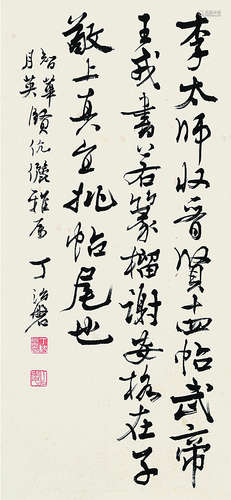 李太师收晋贤十四帖武帝
王戎书若篆榴谢安格在子
敬上真宜批帖尾也
智华
月英贤伉俪雅属 丁治磐